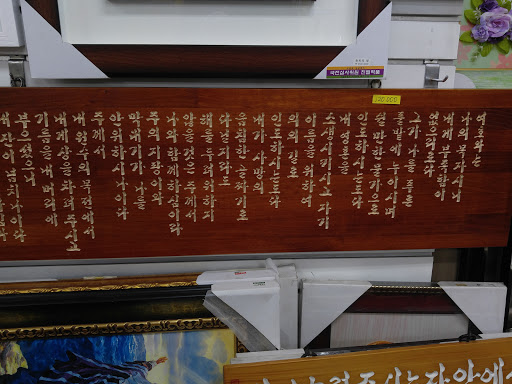 여호와는
나의 목자시니
내게 부족함이
없으리로다
그가 나를 푸른
풀밭에 누이시며
쉴 만한 물가로
인도하시는도다
내 영혼을
소생시키시고 자기
이름을 위하여
의의 길로
인도하시는도다
내가 사망의
음침한 골짜기로
다닐지라도
해를 두려워하지
않을 것은 주께서
나와 함께하심이라
주의 지팡이와
막대기가 나를
안위하시나이다
주께서
내 원수의 목전에서
내게 상을 차려 주시고
기름을 내 머리에
부으셨으니
내 잔이 넘치나이다
주시는 자 안에